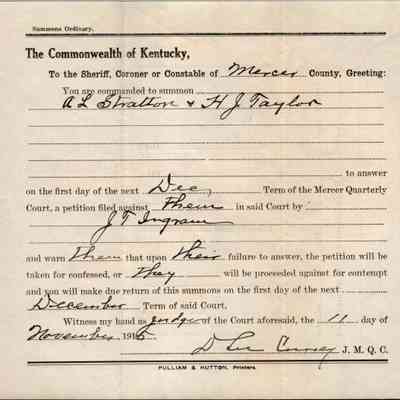 Summons Ordinary.
The Commonwealth of Kentucky,
To the Sheriff, Coroner or Constable of Mercer County, Greeting:
You are commanded to summon
A L Stratton & H J Taylor
to answer
on the first day of the next Dec, Term of the Mercer Quarterly
Court, a petition filed against them in said Court by
J T Ingram
and warn them that upon their failure to answer, the petition will be
taken for confessed, or they will be proceeded against for contempt
and you will make due return of this summons on the first day of the next
December Term of said Court.
Witness my hand as judge of the Court aforesaid, the 11 day of
November 1915.
D J. M. Q. C.
PULLIAM & HUTTON, Printers.